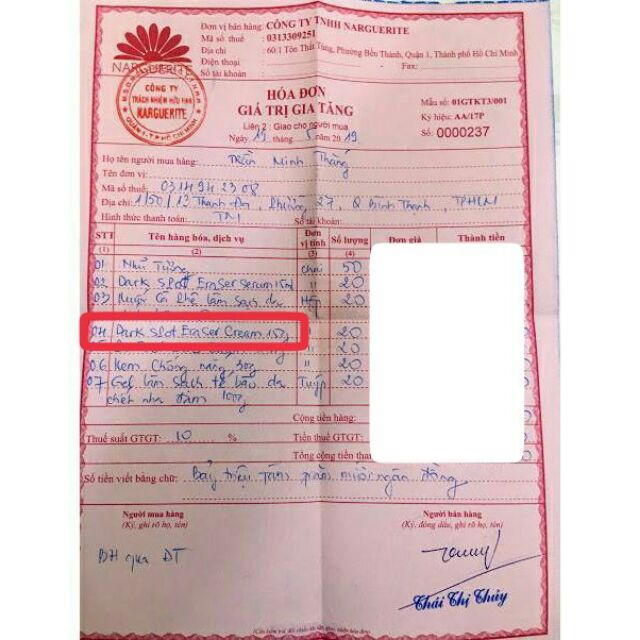 NARGUERITE
Đơn vị bán hàng: CÔNG TY TNHH NARGUERITE
Mã số thuế : 0313309251
Địa chỉ : 60.1 Tôn Thất Tùng, Phường Bến Thành, Quận 1, Thành phố Hồ Chí Minh
Điện thoại : - Fax:
Số tài khoản :
CÔNG TY
TRÁCH NHIỆM HỮU HẠN
NARGUERITE
HÓA ĐƠN
GIÁ TRỊ GIA TĂNG
Liên 2 : Giao cho người mua
Ngày 19 tháng 5 năm 2019
Mẫu số: 01GTKT3/001
Ký hiệu: AA/17P
Số: 0000237
Họ tên người mua hàng: Trần Minh Thắng
Tên đơn vị:
Mã số thuế: 0314942308
Địa chỉ: 1/50/12 Thanh Đa, Phường 27, Q Bình Thạnh, TPHCM
Hình thức thanh toán: TM Số tài khoản:
STT Tên hàng hóa, dịch vụ Đơn vị tính Số lượng Đơn giá Thành tiền
(1) (2) (3) (4)
01 Nhũ Tương chai 50
02 Dark Spot Eraser Serum 15ml " 20
03 20
04 Dark Spot Eraser Cream 15g " 20
20
06 Kem Chống nắng 30g " 20
07 Gel làm sạch tế bào da Tuýp 20
chết 100g
Cộng tiền hàng:
Thuế suất GTGT: 10 % Tiền thuế GTGT:
Tổng cộng tiền
Số tiền viết bằng chữ: Bảy triệu tám trăm mười ngàn đồng
Người mua hàng Người bán hàng
(Ký, ghi rõ họ, tên) (Ký, đóng dấu, ghi rõ họ, tên)
BH qua ĐT
Thái Thị Thủy